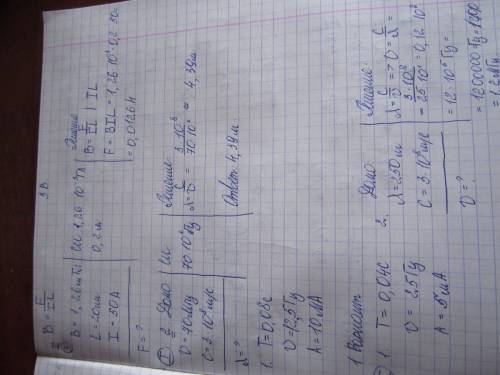 3 В
B = F/IL
B = 1,26 мТл
L = 20 см
I = 50 А
F = ?
СИ
1,26·10⁻³ Тл
0,2 м
Решение
B = F/IL | IL
F = BIL = 1,26·10⁻³·0,2·50 =
= 0,0126 Н
Дано
υ = 70 МГц
C = 3·10⁸ м/с
λ = ?
СИ
70·10⁶ Гц
Решение
λ = C/υ = 3·10⁸/70·10⁶ = 4,39 м.
Ответ: 4,39 м.
1. T = 0,08 с
υ = 12,5 Гц
A = 10 мА
1 Вариант
1. T = 0,04 с
υ = 25 Гц
A = 5 мА
2. Дано
λ = 250 м
C = 3·10⁸ м/с
υ = ?
Решение
λ = C/υ => υ = C/λ =
= 3·10⁸/25·10¹ = 0,12·10⁷
= 12·10⁵ Гц =
= 1200000 Гц = 1200
= 1,2 МГц